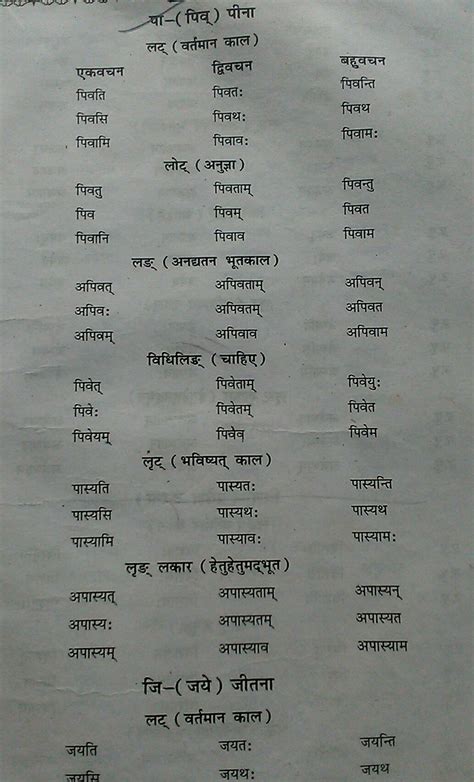 पा-(पिव्) पीना
लट् (वर्तमान काल)
एकवचन द्विवचन बहुवचन
पिवति पिवतः पिवन्ति
पिवसि पिवथः पिवथ
पिवामि पिवावः पिवामः
लोट् (अनुज्ञा)
पिवतु पिवताम् पिवन्तु
पिव पिवम् पिवत
पिवानि पिवाव पिवाम
लङ् (अनद्यतन भूतकाल)
अपिवत् अपिवताम् अपिवन्
अपिवः अपिवतम् अपिवत
अपिवम् अपिवाव अपिवाम
विधिलिङ् (चाहिए)
पिवेत् पिवेताम् पिवेयुः
पिवेः पिवेतम् पिवेत
पिवेयम् पिवेव पिवेम
लृट् (भविष्यत् काल)
पास्यति पास्यतः पास्यन्ति
पास्यसि पास्यथः पास्यथ
पास्यामि पास्यावः पास्यामः
लृङ् लकार (हेतुहेतुमद्भूत)
अपास्यत् अपास्यताम् अपास्यन्
अपास्यः अपास्यतम् अपास्यत
अपास्यम् अपास्याव अपास्याम
जि-(जये) जीतना
लट् (वर्तमान काल)
जयति जयतः जयन्ति
जयसि जयथः जयथ